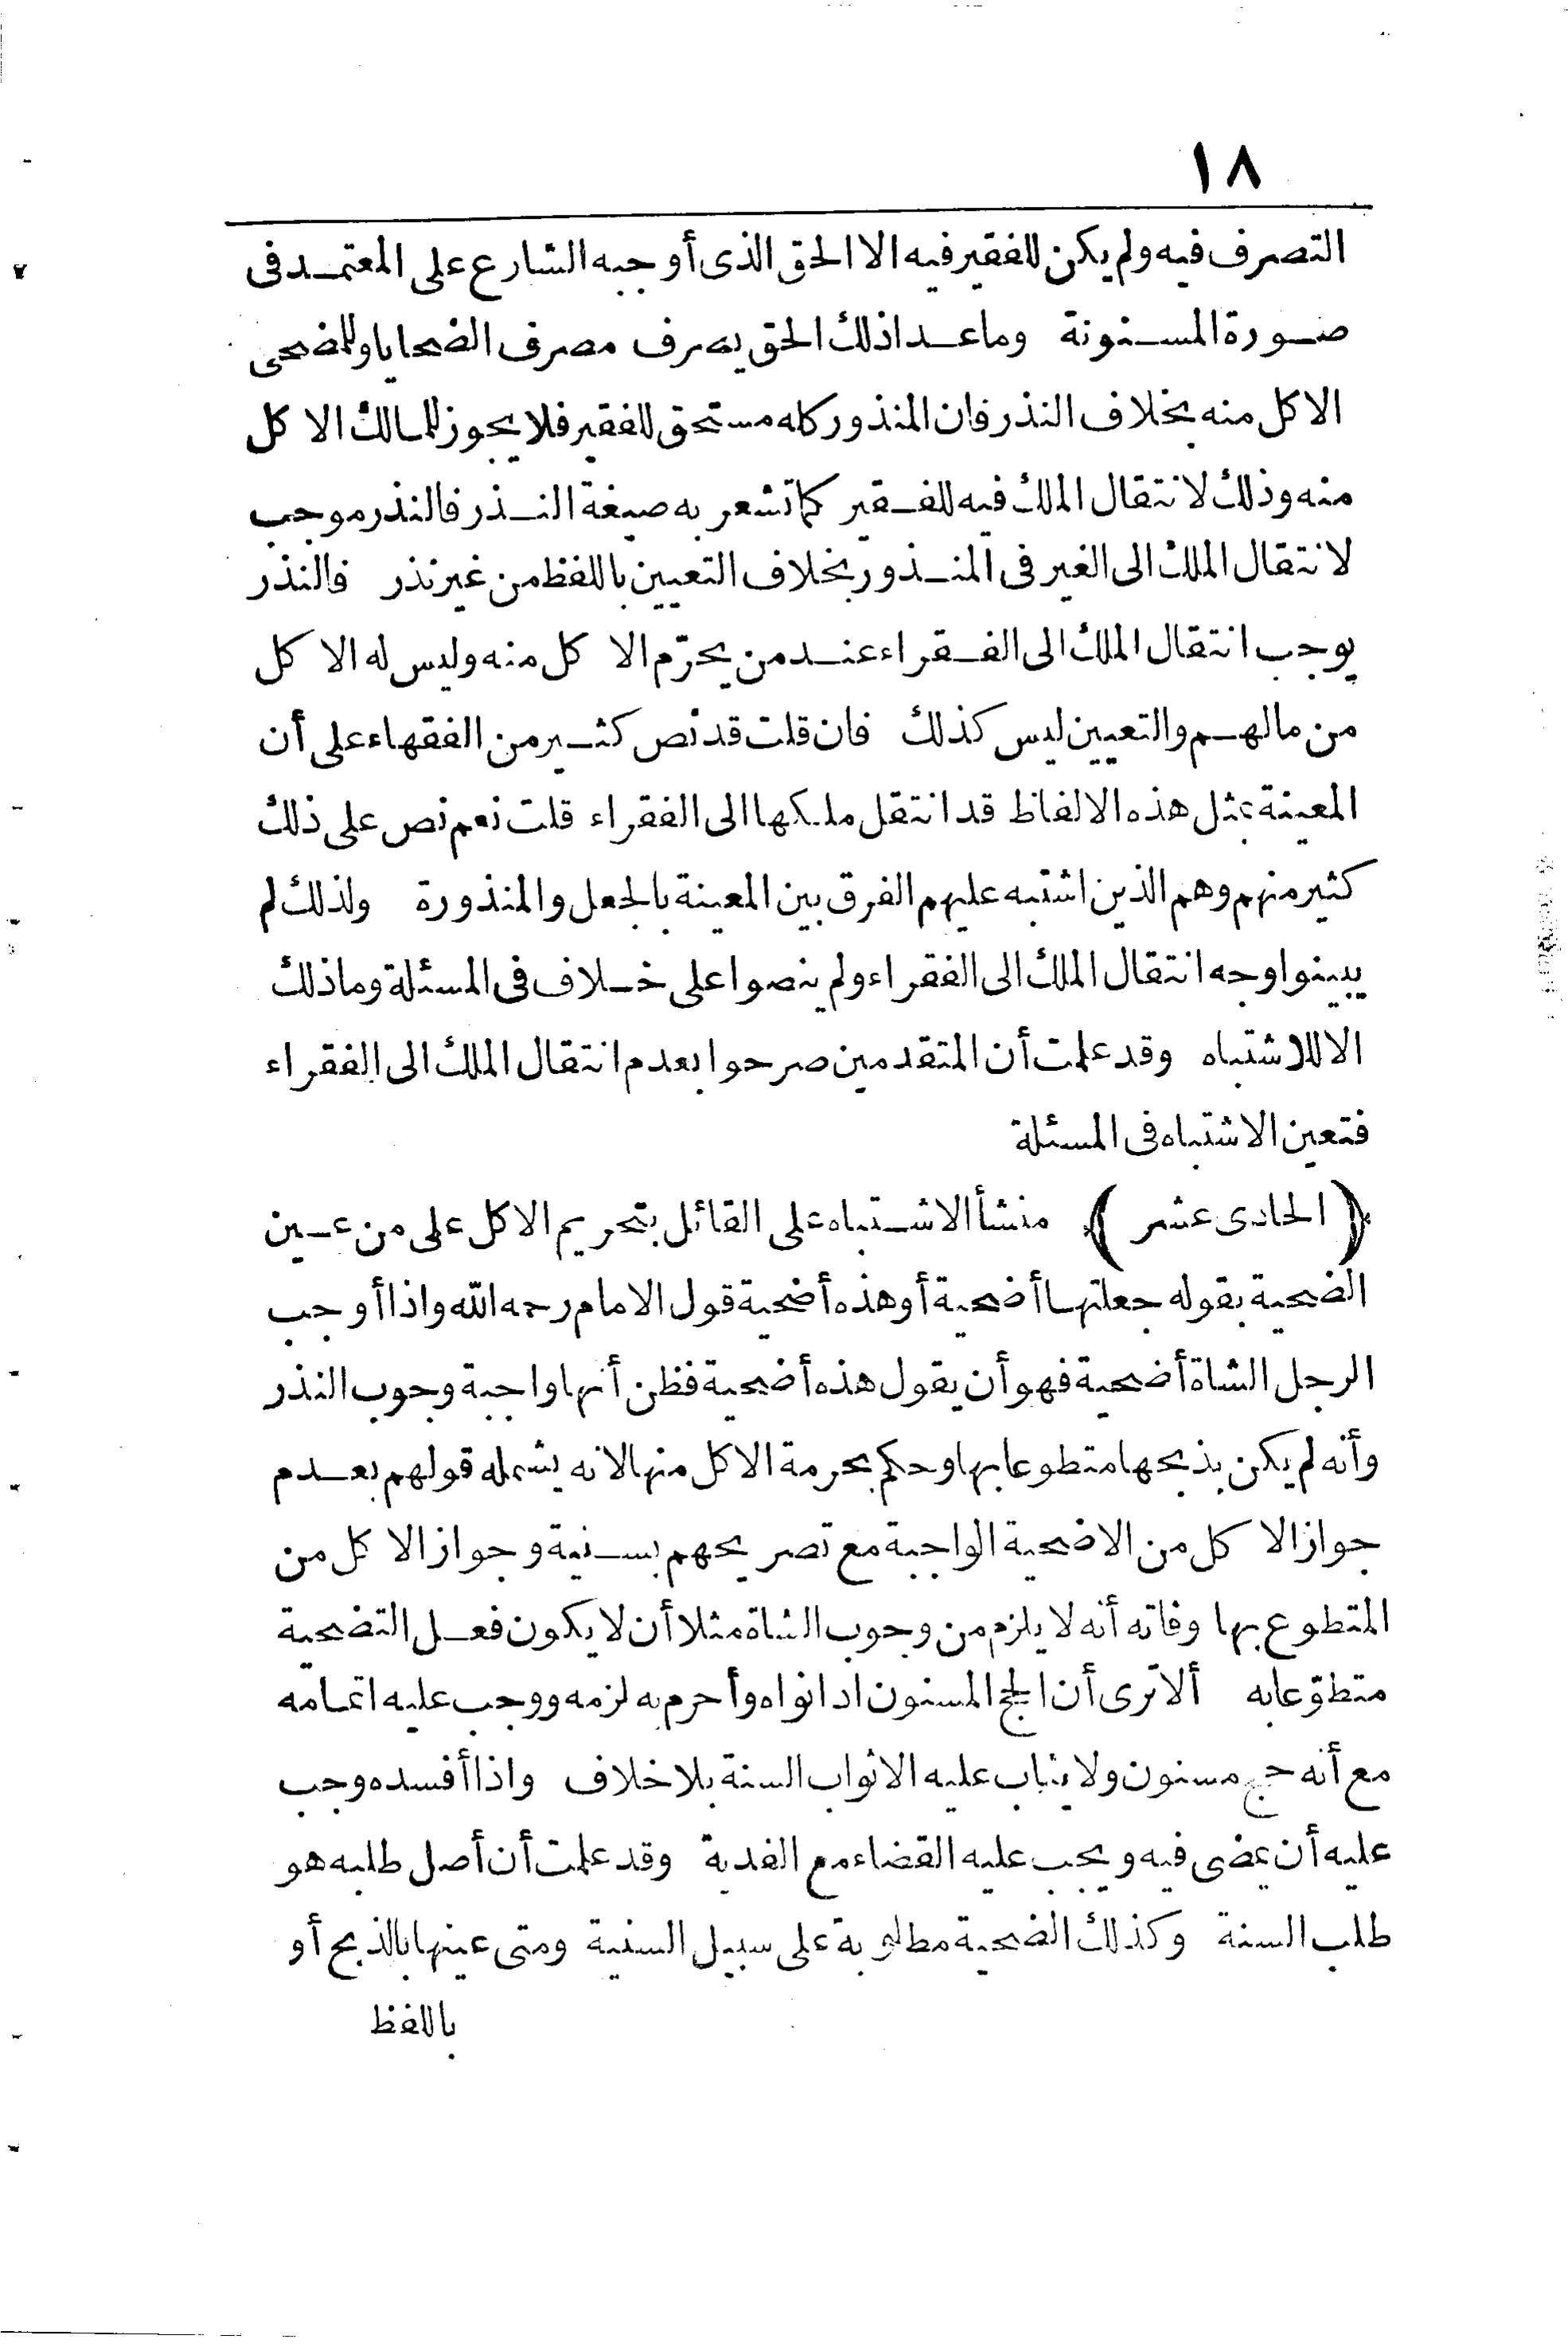 ١٨
التصرف فيه ولم يكن للفقير فيه الا الحق الذى أوجبه الشارع على المعتمد فى
صورة المسنونة وما عدا ذلك الحق يصرف مصرف الضحايا وللمضحى
الاكل منه بخلاف النذر فان المنذور كله مستحق للفقير فلا يجوز للمالك الاكل
منه وذلك لانتقال الملك فيه للفقير كما تشعر به صيغة النذر فالنذر موجب
لانتقال الملك الى الغير فى المنذور بخلاف التعيين باللفظ من غير نذر فالنذر
يوجب انتقال الملك الى الفقراء عند من يحرّم الاكل منه وليس له الاكل
من مالهم والتعيين ليس كذلك فان قلت قد نص كثير من الفقهاء على أن
المعينة بمثل هذه الالفاظ قد انتقل ملكها الى الفقراء قلت نعم نص على ذلك
كثير منهم وهم الذين اشتبه عليهم الفرق بين المعينة بالجعل والمنذورة ولذلك لم
يبينوا وجه انتقال الملك الى الفقراء ولم ينصوا على خلاف فى المسئلة وما ذلك
الا للاشتباه وقد علمت أن المتقدمين صرحوا بعدم انتقال الملك الى الفقراء
فتعين الاشتباه فى المسئلة
﴿ الحادى عشر ﴾ منشأ الاشتباه على القائل بتحريم الاكل على من عين
الضحية بقوله جعلتها أضحية أو هذه أضحية قول الامام رحمه الله واذا أوجب
الرجل الشاة أضحية فهو أن يقول هذه أضحية فظن أنها واجبة وجوب النذر
وأنه لم يكن بذبحها متطوعا بها وحكم بحرمة الاكل منها لانه يشمله قولهم بعدم
جواز الاكل من الاضحية الواجبة مع تصريحهم بسنية وجواز الاكل من
المتطوع بها وفاته أنه لا يلزم من وجوب الشاة مثلا أن لا يكون فعل التضحية
متطوّعا به ألا ترى أن الحج المسنون اذا نواه وأحرم به لزمه ووجب عليه اتمامه
مع أنه حج مسنون ولا يثاب عليه الا ثواب السنة بلا خلاف واذا أفسده وجب
عليه أن يمضى فيه ويجب عليه القضاء مع الفدية وقد علمت أن أصل طلبه هو
طلب السنة وكذلك الضحية مطلوبة على سبيل السنية ومتى عينها بالذبح أو
باللفظ